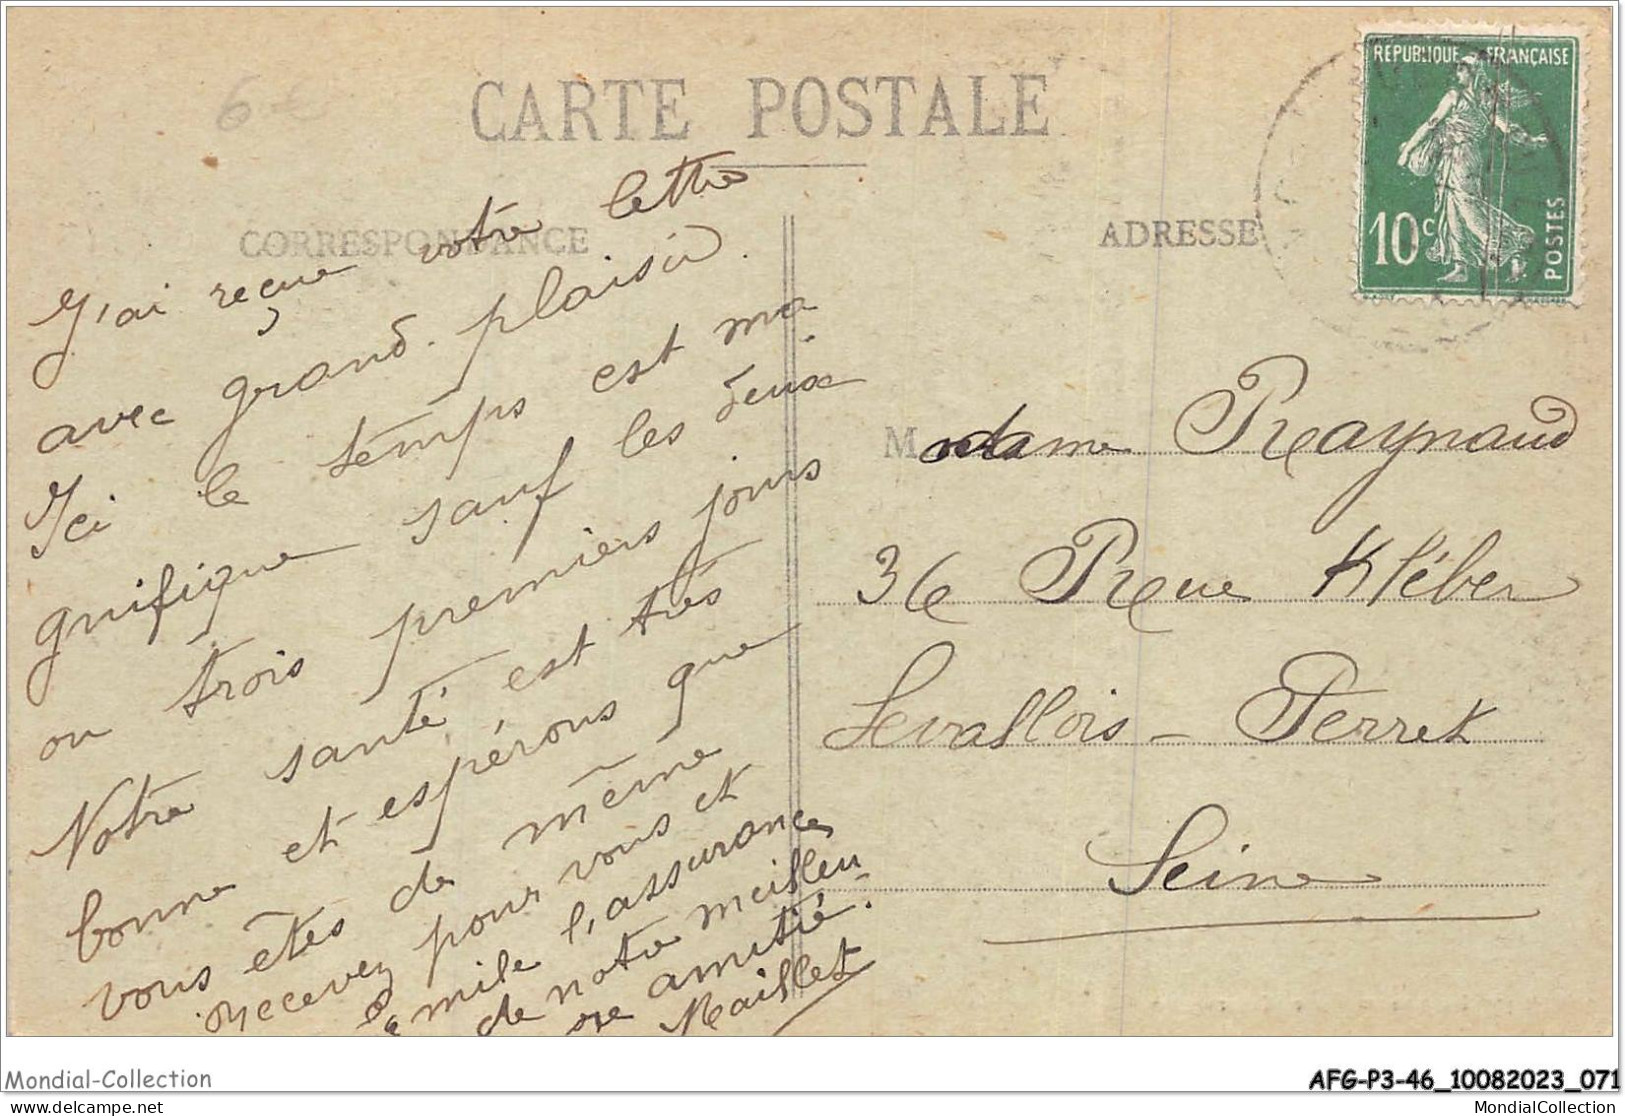 CARTE POSTALE
CORRESPONDANCE
ADRESSE
RÉPUBLIQUE FRANÇAISE
10c
POSTES
6 €
J'ai reçue votre lettre
avec grand plaisir.
Ici le temps est ma-
gnifique sauf les deux
ou trois premiers jours
Notre santé est très
bonne et espérons que
vous êtes de même
Recevez pour vous et
Emile l'assurance
de notre meilleu-
re amitié.
Maillet
Madame Raynaud
36 Rue Kléber
Levallois - Perret
Seine
Mondial-Collection
AFG-P3-46_10082023_071
MondialCollection